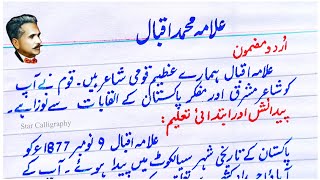 علامہ محمد اقبال
اُردو مضمون
علامہ اقبال ہمارے عظیم قومی شاعر ہیں۔ قوم نے آپ
کو شاعر مشرق اور مفکر پاکستان کے القابات سے نوازا ہے۔
Star Calligraphy
پیدائش اور ابتدائی تعلیم:
علامہ اقبال 9 نومبر 1877ء کو
پاکستان کے تاریخی شہر سیالکوٹ میں پیدا ہوئے۔ آپ کے